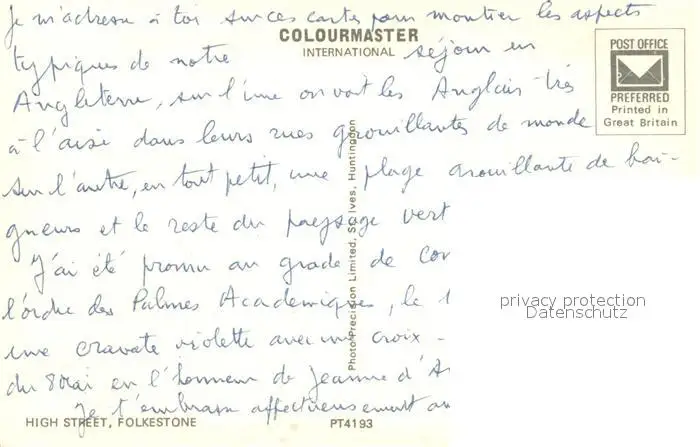 Je m'adresse à toi sur ces cartes pour montrer les aspects
COLOURMASTER
INTERNATIONAL
typiques de notre séjour en
Angleterre, sur l'une on voit les Anglais très
à l'aise dans leurs rues grouillantes de monde
sur l'autre, en tout petit, une plage grouillante de bai-
gneurs et le reste du paysage vert
J'ai été promu au grade de
l'ordre des Palmes Académiques, le
une cravate violette avec une croix -
du 8 mai en l'honneur de Jeanne d'
Je t'embrasse affectueusement
HIGH STREET, FOLKESTONE
PT4193
Photo Precision Limited, St. Ives, Huntingdon
POST OFFICE
PREFERRED
Printed in
Great Britain
privacy protection
Datenschutz